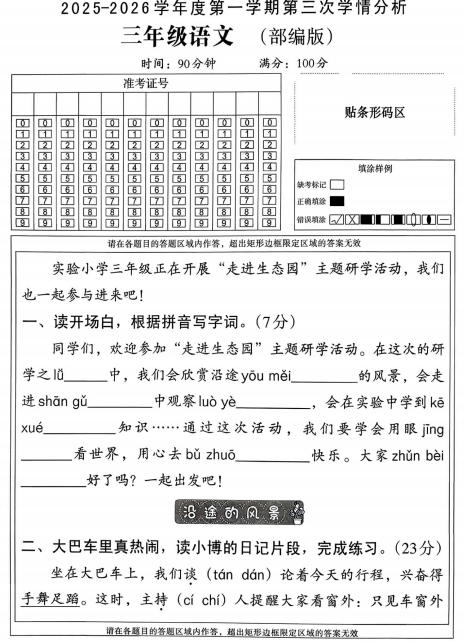 2025-2026学年度第一学期第三次学情分析
三年级语文 （部编版）
时间：90分钟 满分：100分
准考证号
0 0 0 0 0 0 0 0 0 0 0
1 1 1 1 1 1 1 1 1 1 1
2 2 2 2 2 2 2 2 2 2 2
3 3 3 3 3 3 3 3 3 3 3
4 4 4 4 4 4 4 4 4 4 4
5 5 5 5 5 5 5 5 5 5 5
6 6 6 6 6 6 6 6 6 6 6
7 7 7 7 7 7 7 7 7 7 7
8 8 8 8 8 8 8 8 8 8 8
9 9 9 9 9 9 9 9 9 9 9
贴条形码区
填涂样例
缺考标记
正确填涂
错误填涂
请在各题目的答题区域内作答，超出矩形边框限定区域的答案无效
实验小学三年级正在开展“走进生态园”主题研学活动，我们
也一起参与进来吧！
一、读开场白，根据拼音写字词。（7分）
同学们，欢迎参加“走进生态园”主题研学活动。在这次的研
学之lǚ______中，我们会欣赏沿途yōu měi________的风景，会走
进shān gǔ________中观察luò yè________，会在实验中学到kē
xué________知识……通过这次活动，我们要学会用眼jīng
________看世界，用心去bǔ zhuō________快乐。大家zhǔn bèi
________好了吗？一起出发吧！
沿途的风景
二、大巴车里真热闹，读小博的日记片段，完成练习。（23分）
坐在大巴车上，我们谈（tán dán）论着今天的行程，兴奋得
手舞足蹈。这时，主持（cí chí）人提醒大家看窗外：只见车窗外
请在各题目的答题区域内作答，超出矩形边框限定区域的答案无效